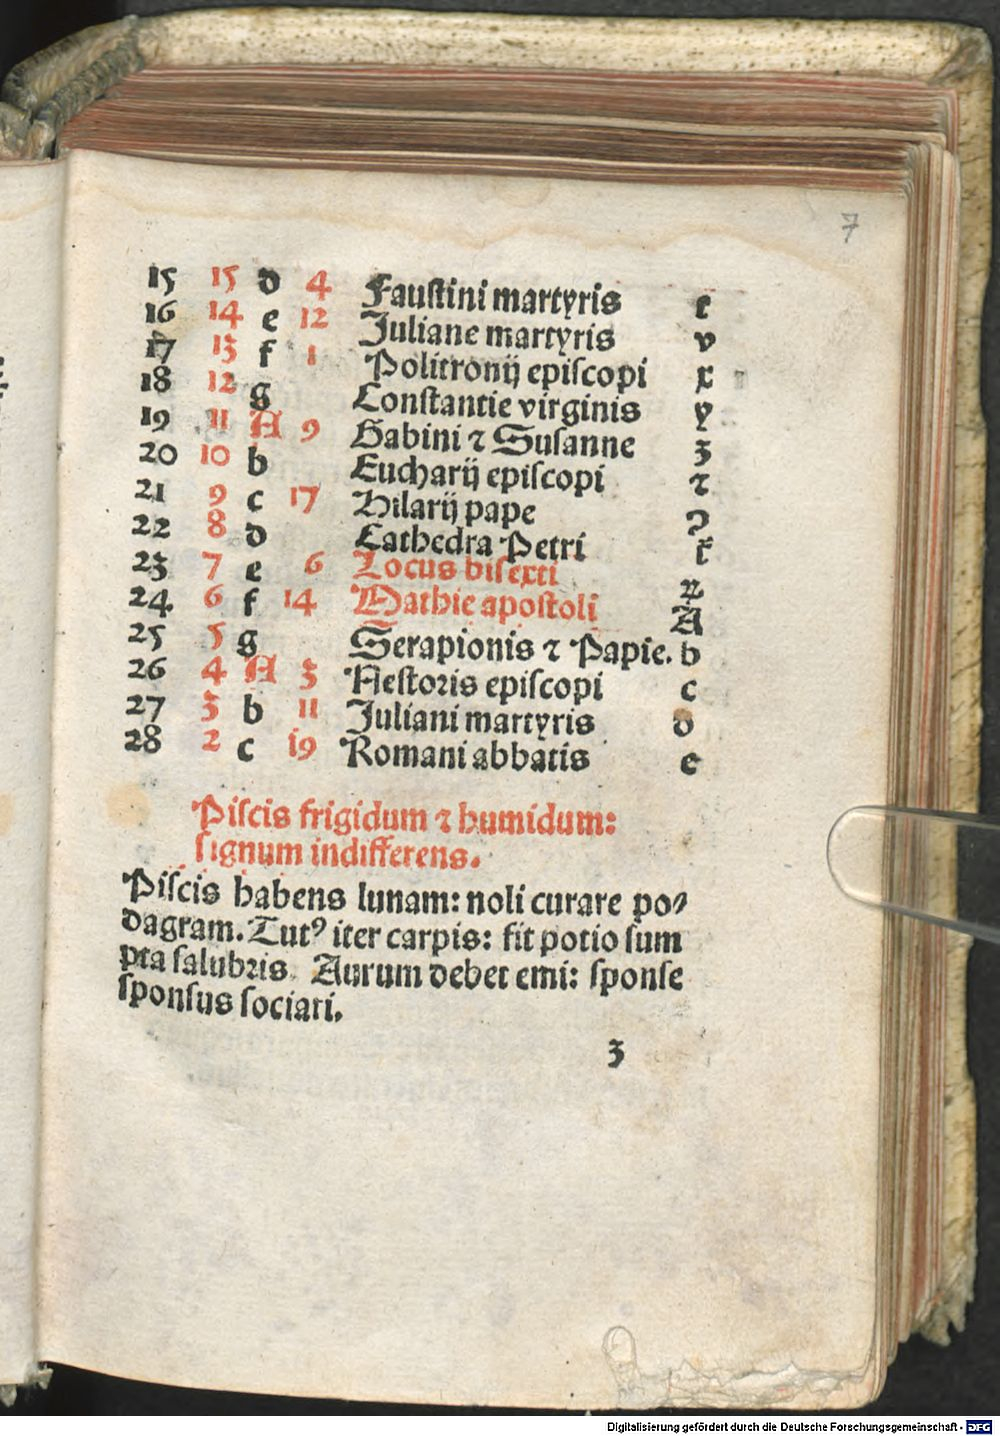 7
15 15 d 4 Faustini martyris t
16 14 e 12 Juliane martyris v
17 13 f 1 Politronij episcopi x
18 12 g Constantie virginis y
19 11 A 9 Gabini ⁊ Susanne z
20 10 b Eucharij episcopi ⁊
21 9 c 17 Hilarij pape ꝯ
22 8 d Cathedra Petri
23 7 e 6 Locus bisexti
24 6 f 14 Mathie apostoli A
25 5 g Serapionis ⁊ Papie. b
26 4 A 3 Nestoris episcopi c
27 3 b 11 Juliani martyris d
28 2 c 19 Romani abbatis e
Piscis frigidum ⁊ humidum:
signum indifferens.
Piscis habens lunam: noli curare po⸗
dagram. Tutꝰ iter carpis: fit potio sum
pta salubris. Aurum debet emi: sponse
sponsus sociari.
3
Digitalisierung gefördert durch die Deutsche Forschungsgemeinschaft - DFG